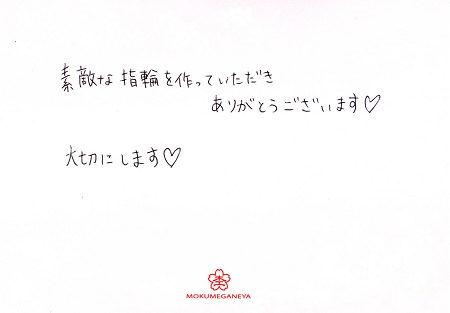 素敵な指輪を作っていただき
ありがとうございます♡
大切にします♡
MOKUMEGANEYA